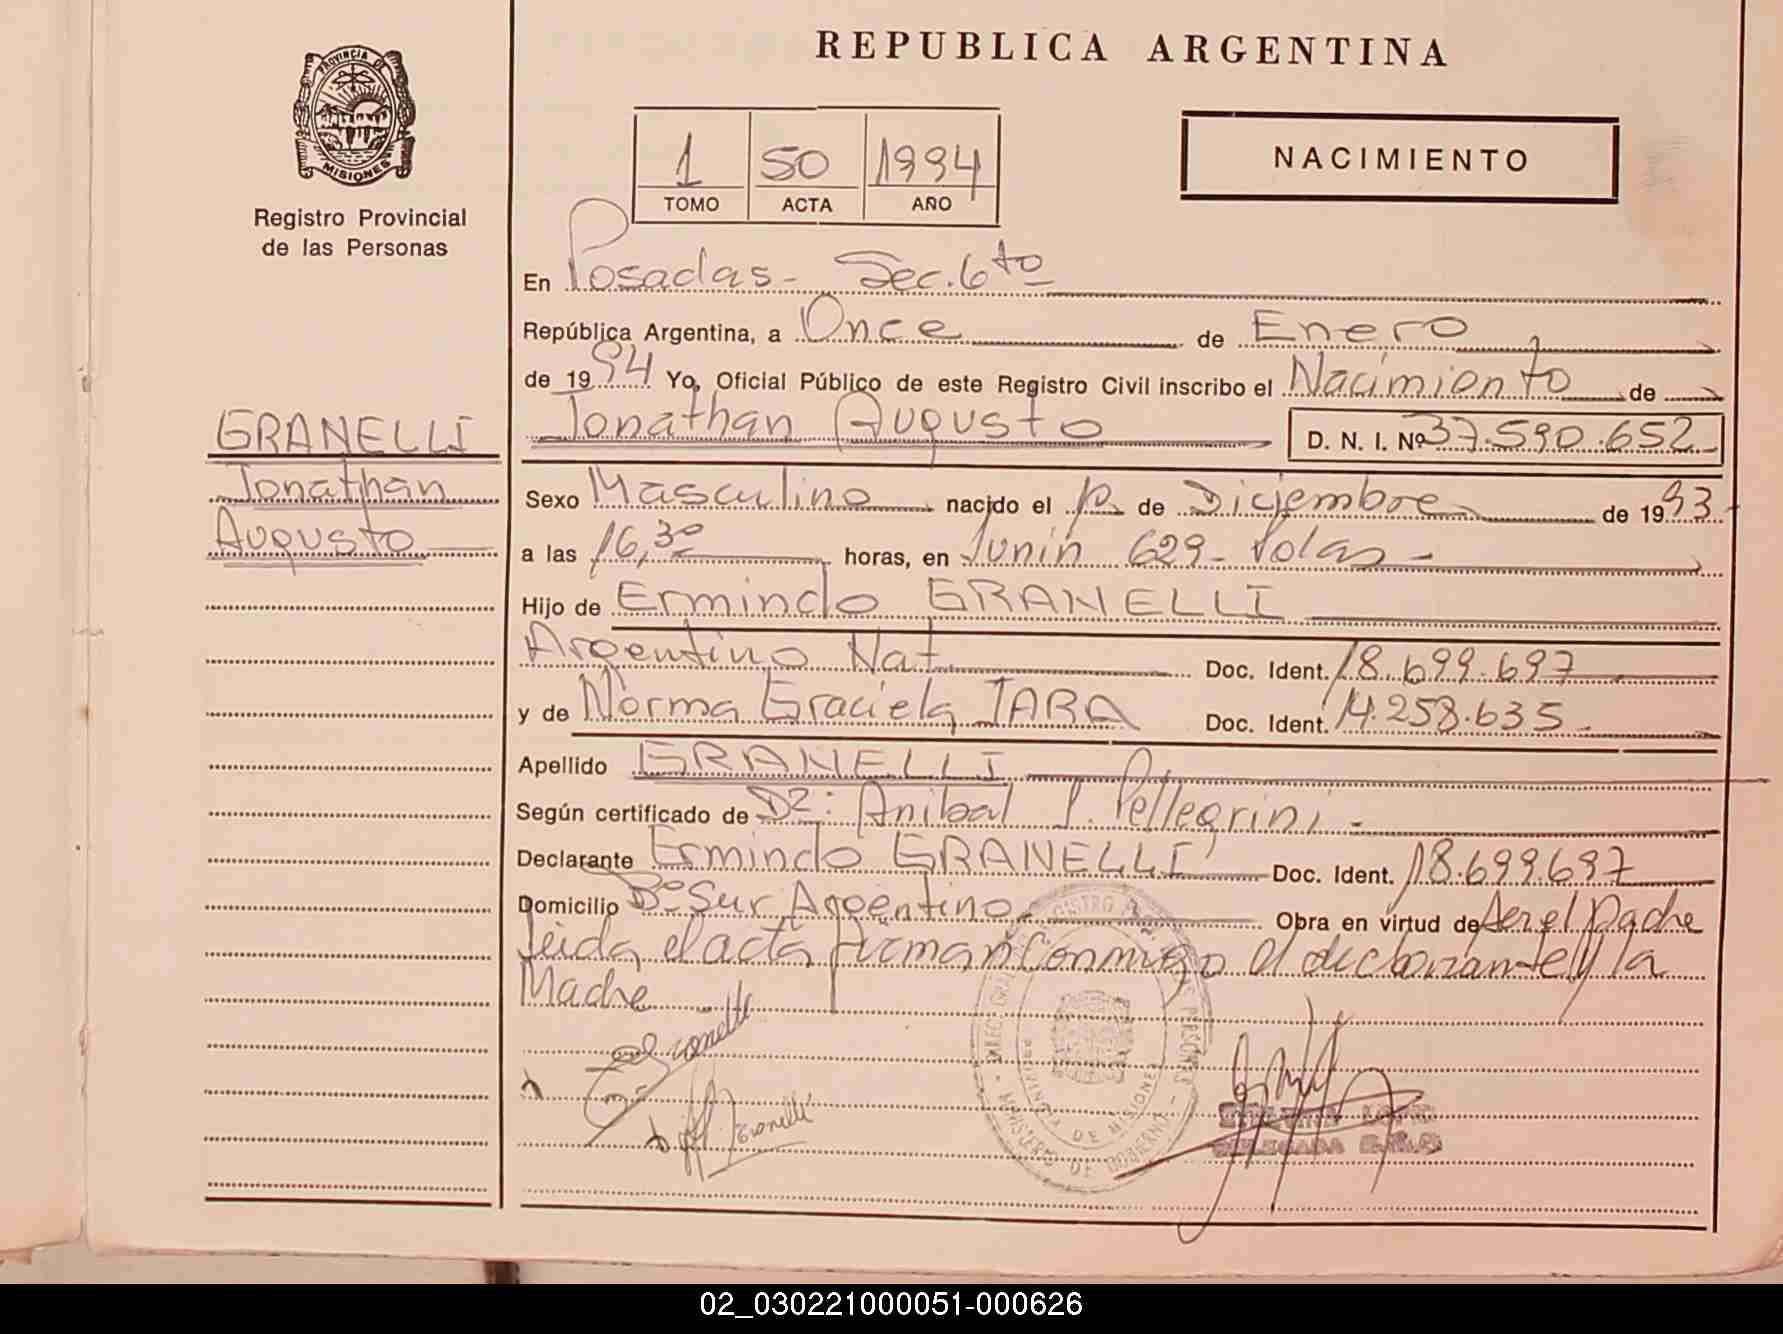 REPUBLICA ARGENTINA
PROVINCIA DE
MISIONES
Registro Provincial
de las Personas
1 50 1994
TOMO ACTA AÑO
NACIMIENTO
En Posadas - Sec. 6to
República Argentina, a Once de Enero
de 1994 Yo, Oficial Público de este Registro Civil inscribo el Nacimiento de
Jonathan Augusto D. N. I. Nº 37.590.652
GRANELLI
Jonathan
Augusto
Sexo Masculino nacido el de Diciembre de 1993
a las 16,30 horas, en Junin 629 - Pdas -
Hijo de Ermindo GRANELLI
Argentino Nat. Doc. Ident. 18.699.697
y de Norma Graciela JARA Doc. Ident. 14.258.635
Apellido GRANELLI
Según certificado de Dr: Anibal J. Pellegrini -
Declarante Ermindo GRANELLI Doc. Ident. 18.699.697
Domicilio Bº Sur Argentino Obra en virtud de ser el padre
leida el acta firman conmigo el declarante y la
Madre
PROVINCIA DE MISIONES
MINISTERIO DE GOBIERNO
DELEGADA
02_030221000051-000626